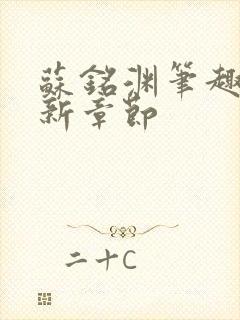 蘇銘渊筆趣
新章節
二十C